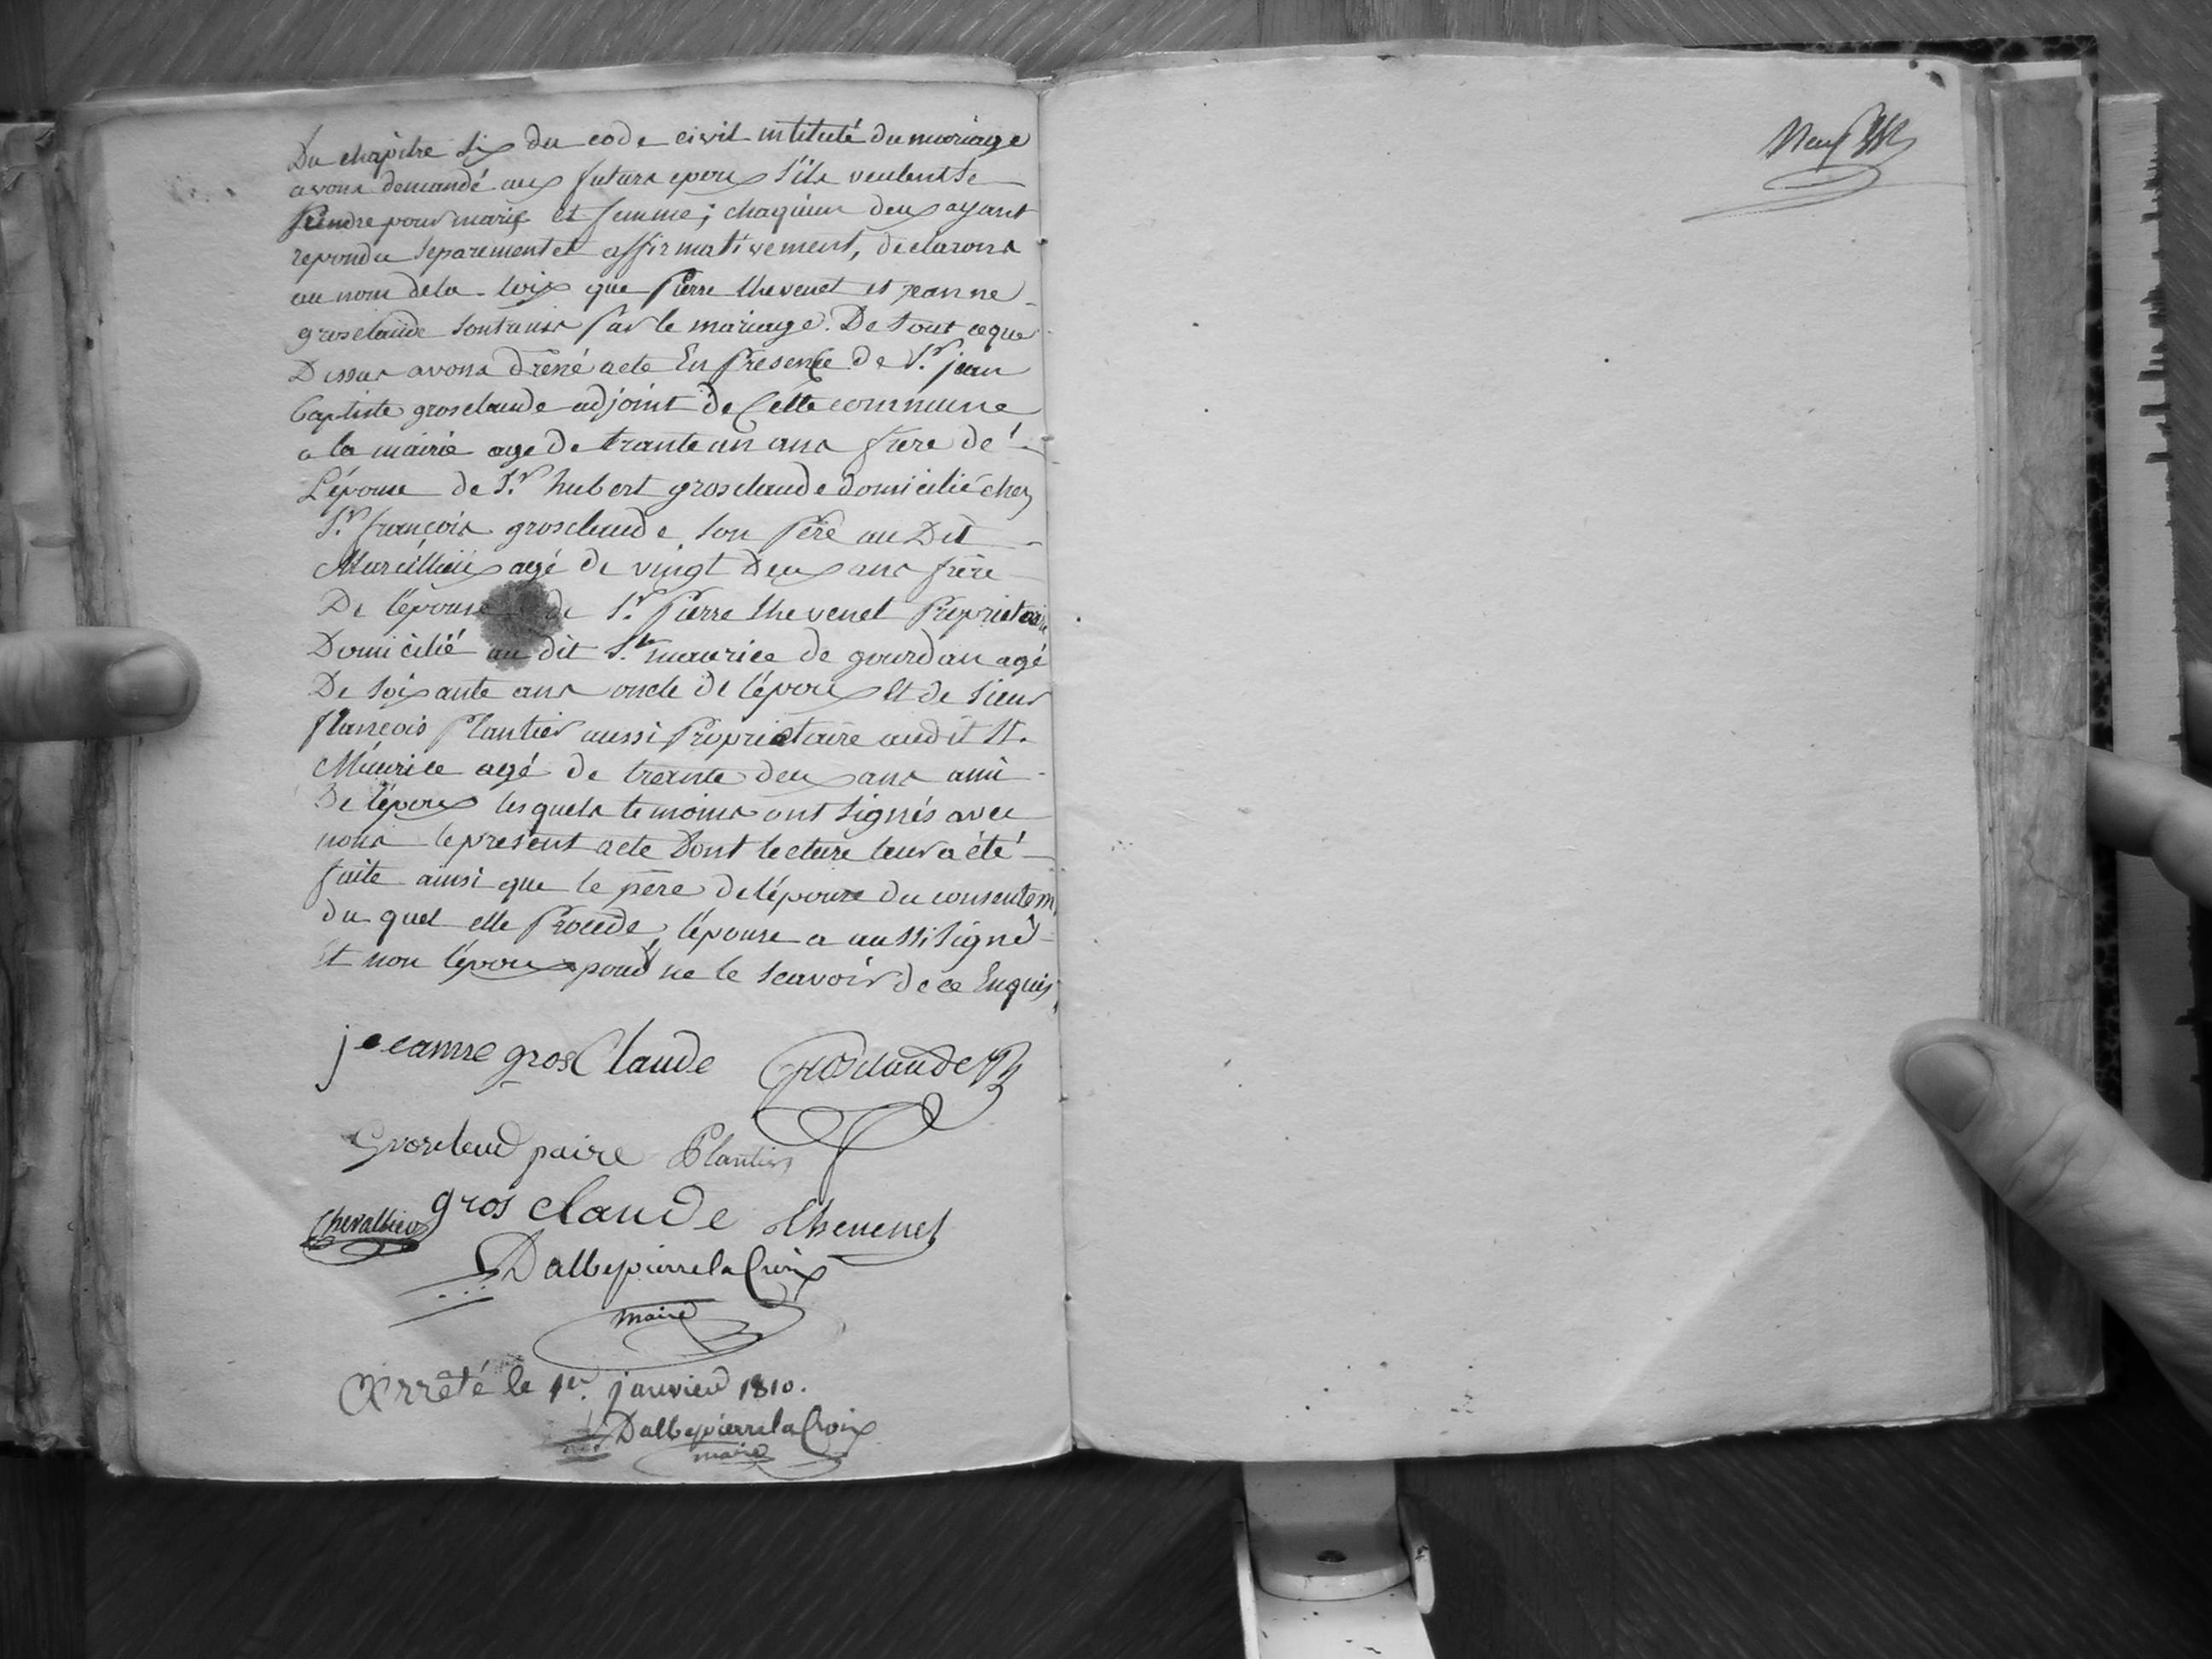 Du chapitre six du code civil intitulé du mariage
avons demandé aux futurs epoux s'ils veulent se
prendre pour marie et femme; chaqu'un deux ayant
repondu separement et affirmativement, declarons
au nom dela loix que Pierre thevenet et jeanne
grosclaude sont unis par le mariage. De tout ceque
Dessus avons dressé acte En Presence de Sr. jean
baptiste grosclaude adjoint de Cette commune
a la mairie agé de trante un ans frere de
L'épouse de Sr. hubert grosclaude domicilié chez
Sr. françois grosclaude son Père au Dit
agé de vingt Deux ans frère
De l'épouse de Sr. Pierre thevenet Proprietaire
Domicilié au dit St. maurice de gourdan agé
De soixante ans oncle de l'époux Et de sieur
françois Plantier aussi Proprietaire audit St.
Maurice agé de trante deux ans ami
De l'époux lesquels temoins ont signés avec
nous le present acte Dont lecture leur a été
faite ainsi que le père de l'épouse du consentem
du quel elle Procede, l'épouse a aussi signé
Et non l'époux pour ne le scavoir de ce Enquis
jeeanne grosClaude Grosclaude
Grosclaud paire Plantier
Chevallier gros claude thevenet
DallepierrelaCroix
maire
Arrêté le 1er. janvier 1810.
DallepierrelaCroix
maire
Neuf